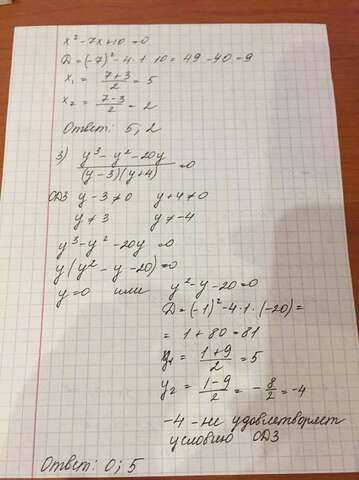 x² - 7x + 10 = 0
D = (-7)² - 4·1·10 = 49 - 40 = 9
x₁ = (7+3)/2 = 5
x₂ = (7-3)/2 = 2
Ответ: 5, 2
3) (y³ - y² - 20y)/((y-3)(y+4)) = 0
ОДЗ y - 3 ≠ 0 y + 4 ≠ 0
y ≠ 3 y ≠ -4
y³ - y² - 20y = 0
y(y² - y - 20) = 0
y = 0 или y² - y - 20 = 0
D = (-1)² - 4·1·(-20) =
= 1 + 80 = 81
y₁ = (1+9)/2 = 5
y₂ = (1-9)/2 = -8/2 = -4
-4 - не удовлетворяет
условию ОДЗ
Ответ: 0; 5